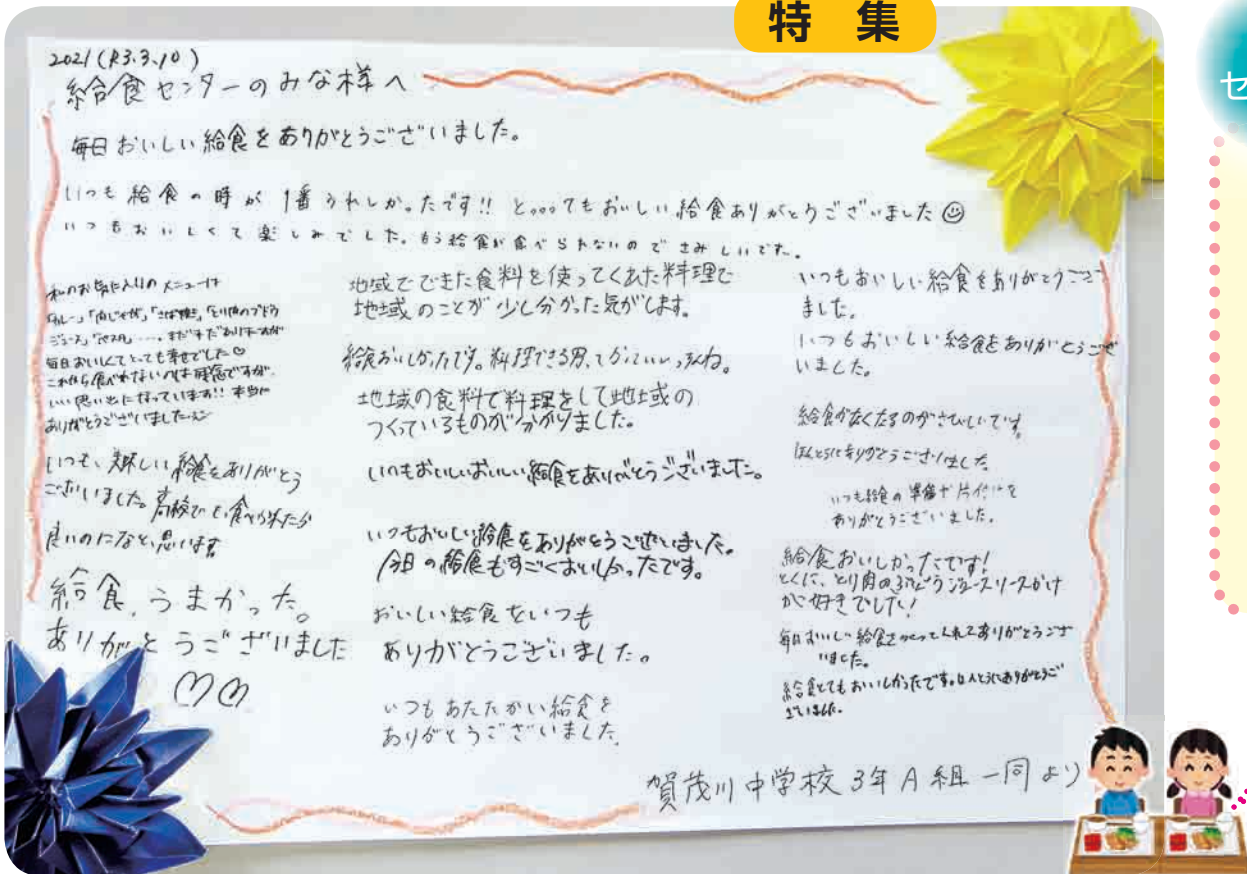 特 集
セ
2021(R3.3.10)
給食センターのみな様へ
毎日おいしい給食をありがとうございました。
いつも給食の時が1番うれしかったです!! と。。。てもおいしい給食ありがとうございました☺
いつもおいしくて楽しみでした。もう給食が食べられないのでさみしいです。
私のお気に入りのメニューは
「カレー」「肉じゃが」「さば焼き」「とり肉のブドウ
ジュース」「パスタ」・・・・。まだまだありますが
毎日おいしくてとっても幸せでした♡
これから食べれないのは残念ですが、
いい思い出になっています!! 本当に
ありがとうございました
いつも、美味しい給食をありがとう
ございました。高校でも食べられたら
良いのになと、思います
給食、うまかった。
ありがとうございました
♡♡
地域でできた食料を使ってくれた料理で
地域のことが少し分かった気がします。
給食おいしかったです。料理できる男、てかっこいいっスね。
地域の食料で料理をして地域の
つくっているものが分かりました。
いつもおいしいおいしい給食をありがとうございました。
いつもおいしい給食をありがとうございました。
今日の給食もすごくおいしかったです。
おいしい給食をいつも
ありがとうございました。
いつもあたたかい給食を
ありがとうございました。
いつもおいしい給食をありがとうござい
ました。
いつもおいしい給食をありがとうござ
いました。
給食がなくなるのがさびしいです。
ほんとうにありがとうございました
いつも給食の準備や片付けを
ありがとうございました。
給食おいしかったです!
とくに、とり肉のぶどうジュースソースがけ
が好きでした!
毎日おいしい給食をつくってくれてありがとうござ
いました。
給食とてもおいしかったです。ほんとうにありがとうご
ざいました。
賀茂川中学校3年A組一同より